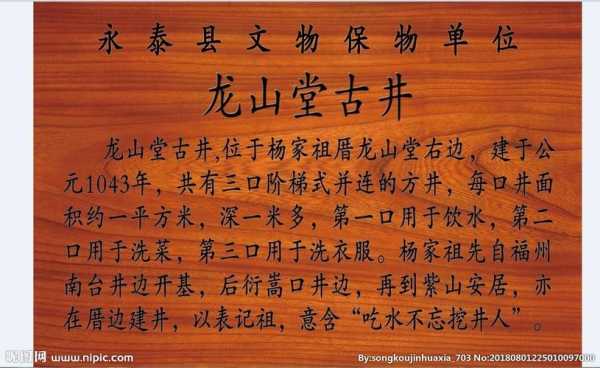 永泰县文物保物单位
龙山堂古井
龙山堂古井,位于杨家祖厝龙山堂右边，建于公
元1043年，共有三口阶梯式并连的方井，每口井面
积约一平方米，深一米多，第一口用于饮水，第二
口用于洗菜，第三口用于洗衣服。杨家祖先自福州
南台井边开基，后衍嵩口井边，再到紫山安居，亦
在厝边建井，以表记祖，意含“吃水不忘挖井人”。
昵图网 www.nipic.com
By:songkoujinhuaxia_703 No:20180801225010097000